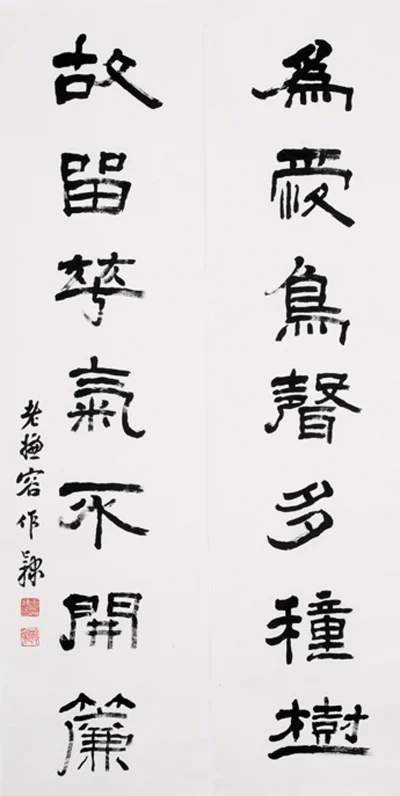 為愛鳥聲多穜樹
故留華氣不開簾
老容作隸